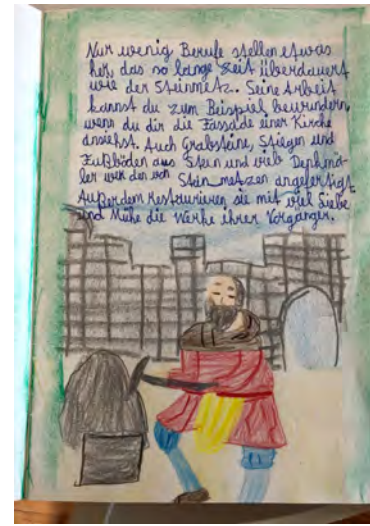 Nur wenig Berufe stellen etwas
her, das so lange Zeit überdauert
wie der Steinmetz. Seine Arbeit
kannst du zum Beispiel bewundern,
wenn du dir die Fassade einer Kirche
ansiehst. Auch Grabsteine, Stiegen und
Fußböden aus Stein und viele Denkmä-
ler wurden von Steinmetzen angefertigt.
Außerdem restaurieren sie mit viel Liebe
und Mühe die Werke ihrer Vorgänger.